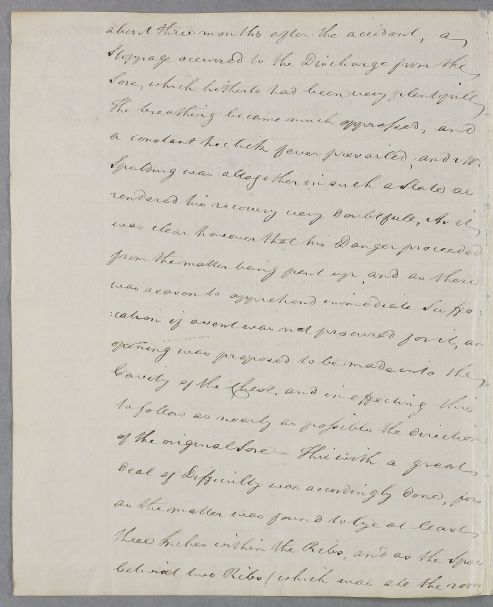 about three months after the accident, a
Stoppage occurred to the Discharge from the
Sore, which hitherto had been very plentiful
The breathing became much oppressed, and
a constant hectick fever prevailed, and Mr.
Spalding was altogether in such a State as
rendered his recovery very doubtfull, As it
was clear however that his Danger proceeded
from the matter being pent up and as there
was reason to apprehend immediate Suffo:
:cation if a vent was not procured for it, an
opening was proposed to be made into the
Cavity of the Chest, and in effecting this
to follow as nearly as possible the direction
of the original Sore — This with a great
Deal of Difficulty was accordingly done, for
as the matter was found to lye at least
three Inches within the Ribs, and as the Space
behind two Ribs (which was all the room